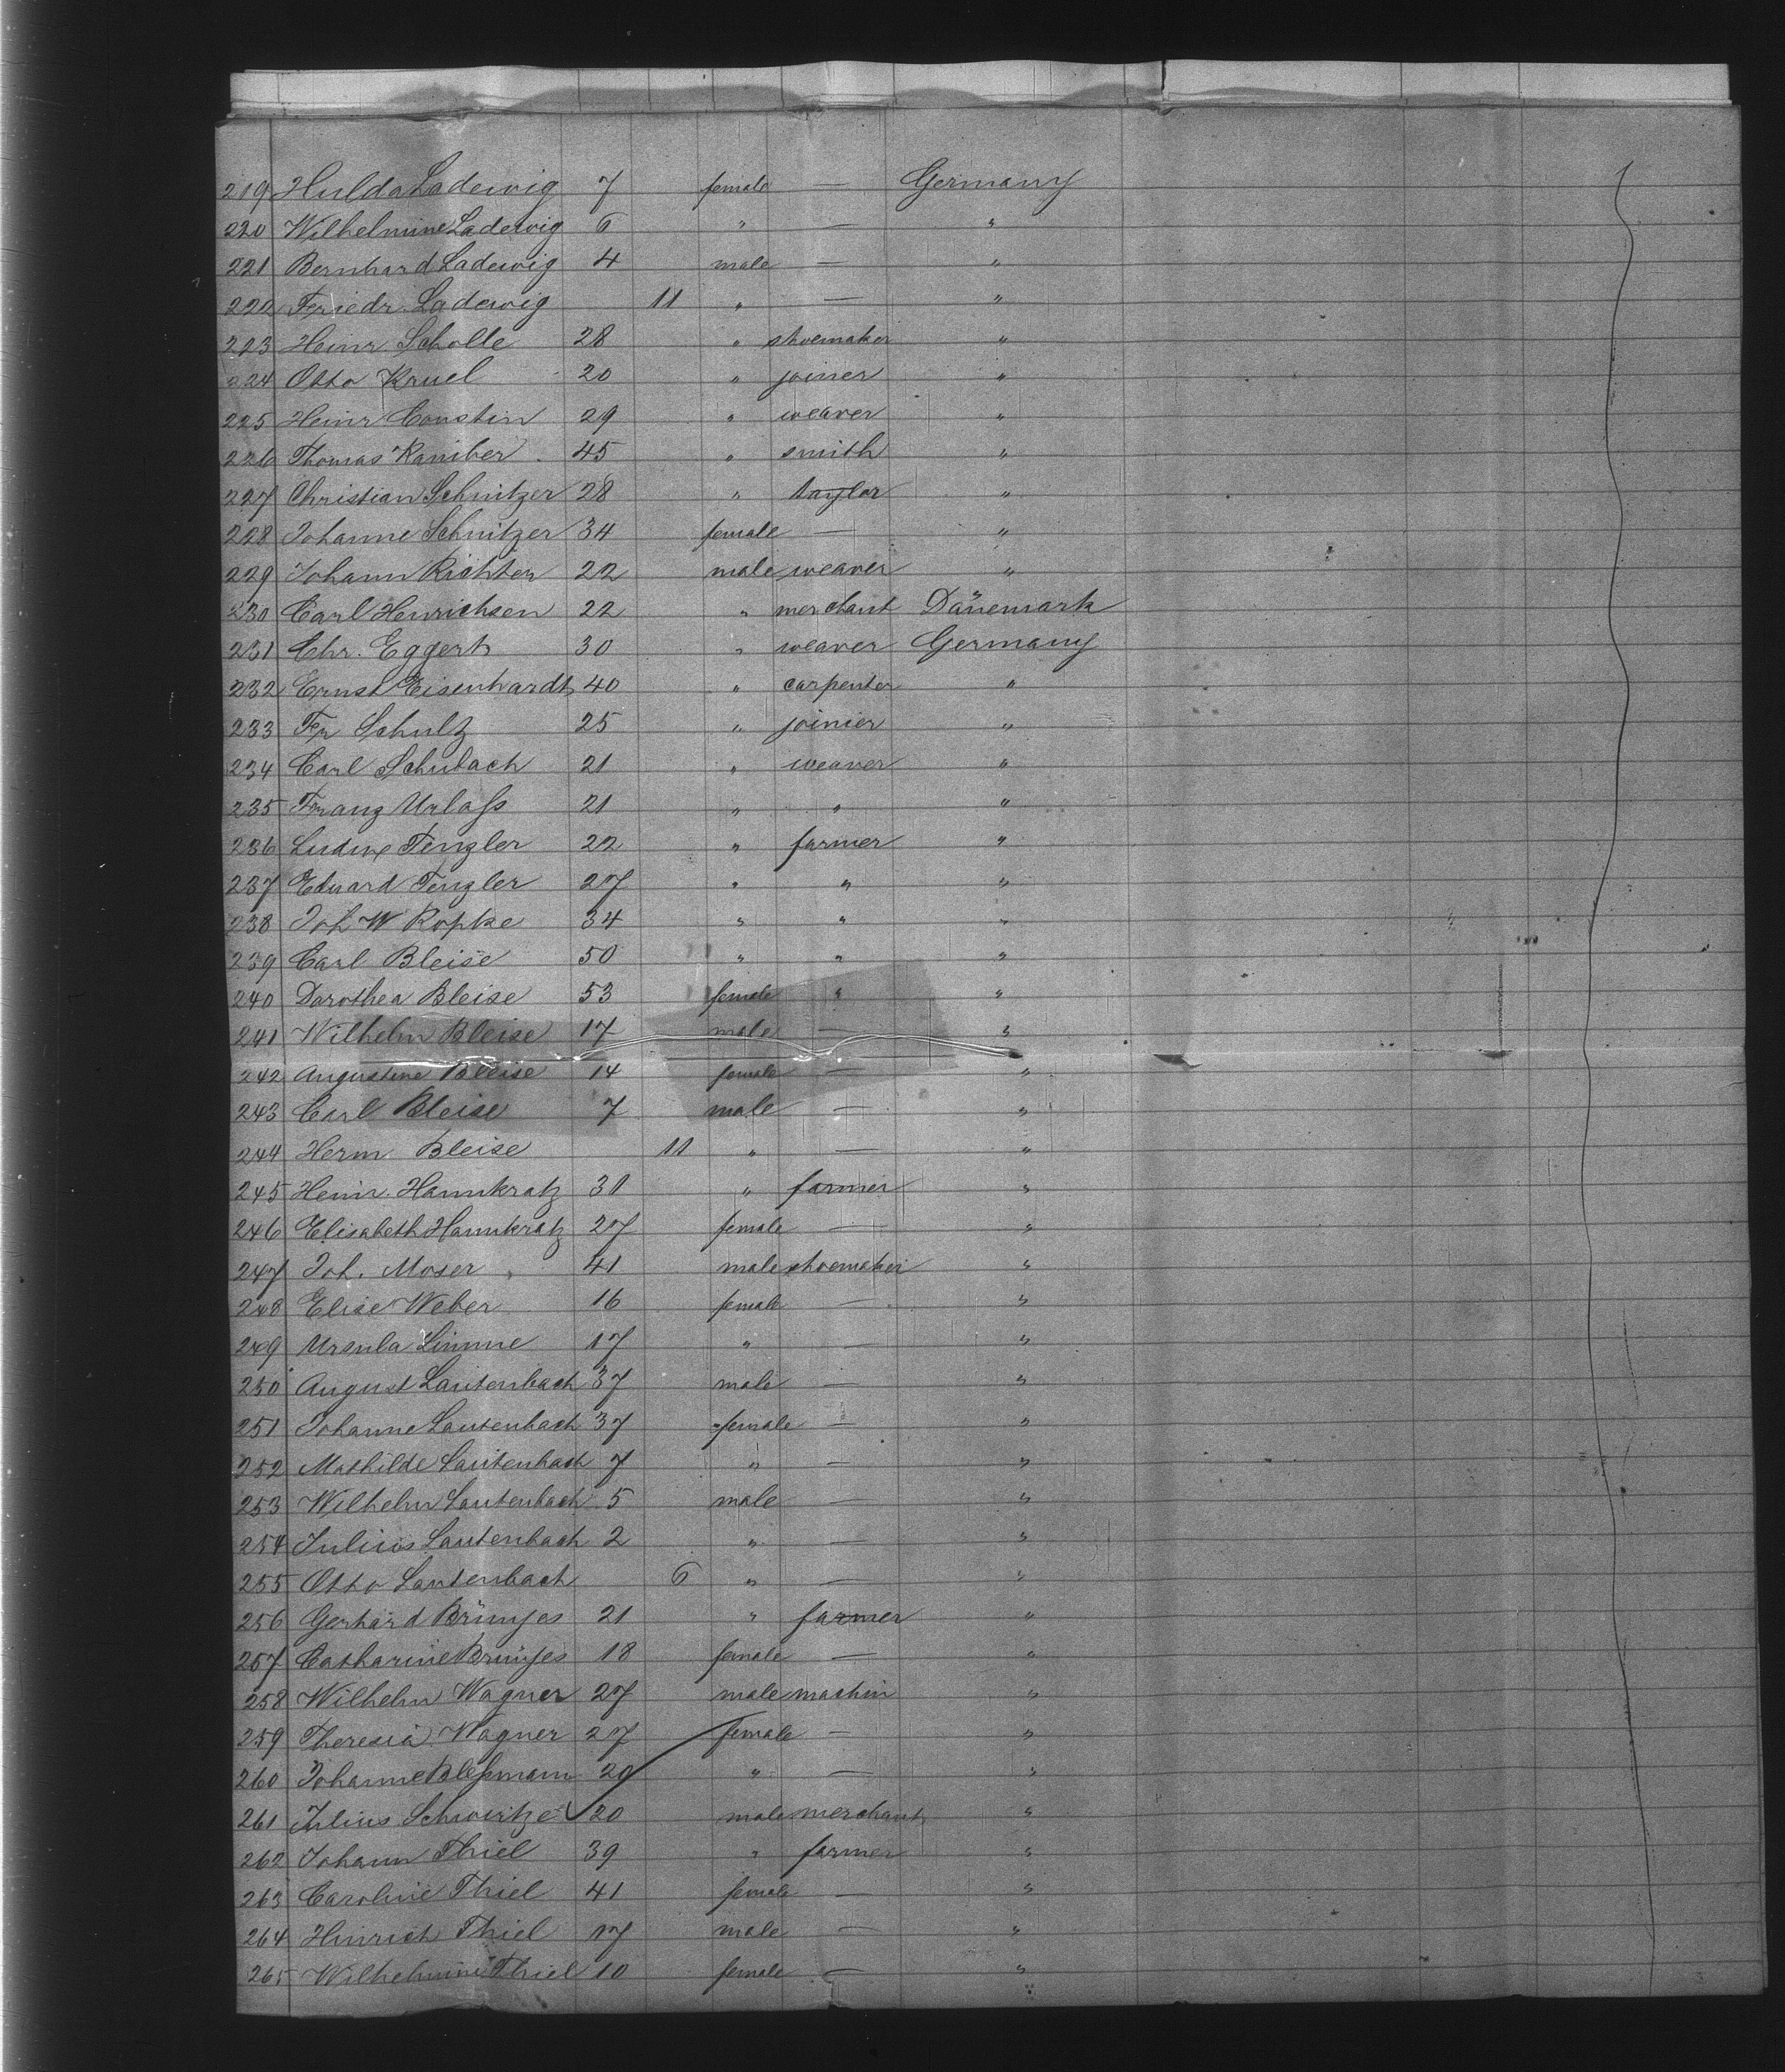 219 Hulda Ladewig 7 female — Germany
220 Wilhelmine Ladewig 6 " — "
221 Bernhard Ladewig 4 male — "
222 Friedr. Ladewig 11 " — "
223 Heinr. Scholle 28 " shoemaker "
224 Otto Kruel 20 " joiner "
225 Heinr Constin 29 " weaver "
226 Thomas Kaniber 45 " smith "
227 Christian Schnitzer 28 " taylor "
228 Johanne Schnitzer 34 female — "
229 Johann Richter 22 male weaver "
230 Carl Henrichsen 22 " merchant Dänemark
231 Chr. Eggert 30 " weaver Germany
232 Ernst Eisenhardt 40 " carpenter "
233 Fr Schultz 25 " joinier "
234 Carl Schubach 21 " weaver "
235 Franz Urlaß 21 " " "
236 Ludwg Tenzler 22 " farmer "
237 Eduard Tenzler 27 " " "
238 Joh W Ropke 34 " " "
239 Carl Bleise 50 " " "
240 Dorothea Bleise 53 female " "
241 Wilhelm Bleise 17 male — "
242 Augustine Bleise 14 female — "
243 Carl Bleise 7 male — "
244 Herm Bleise 11 " — "
245 Heinr. Hannkratz 31 " farmer "
246 Elisabeth Hannkratz 27 female — "
247 Joh. Moser 41 male shoemaker "
248 Elise Weber 16 female — "
249 Ursula Limme 17 " — "
250 August Lautenbach 37 male — "
251 Johanne Lautenbach 37 female — "
252 Mathilde Lautenbach 7 " — "
253 Wilhelm Lautenbach 5 male — "
254 Julius Lautenbach 2 " — "
255 Otto Lautenbach 6 " — "
256 Gerhard Brünjes 21 " farmer "
257 Catharine Brünjes 18 female — "
258 Wilhelm Wagner 27 male machin "
259 Theresia Wagner 27 female — "
260 Johanne Bleßmann 20 " — "
261 Julius Schwirtze 20 male merchant "
262 Johann Thiel 39 " farmer "
263 Caroline Thiel 41 female — "
264 Hinrich Thiel 17 male — "
265 Wilhelmine Thiel 10 female — "